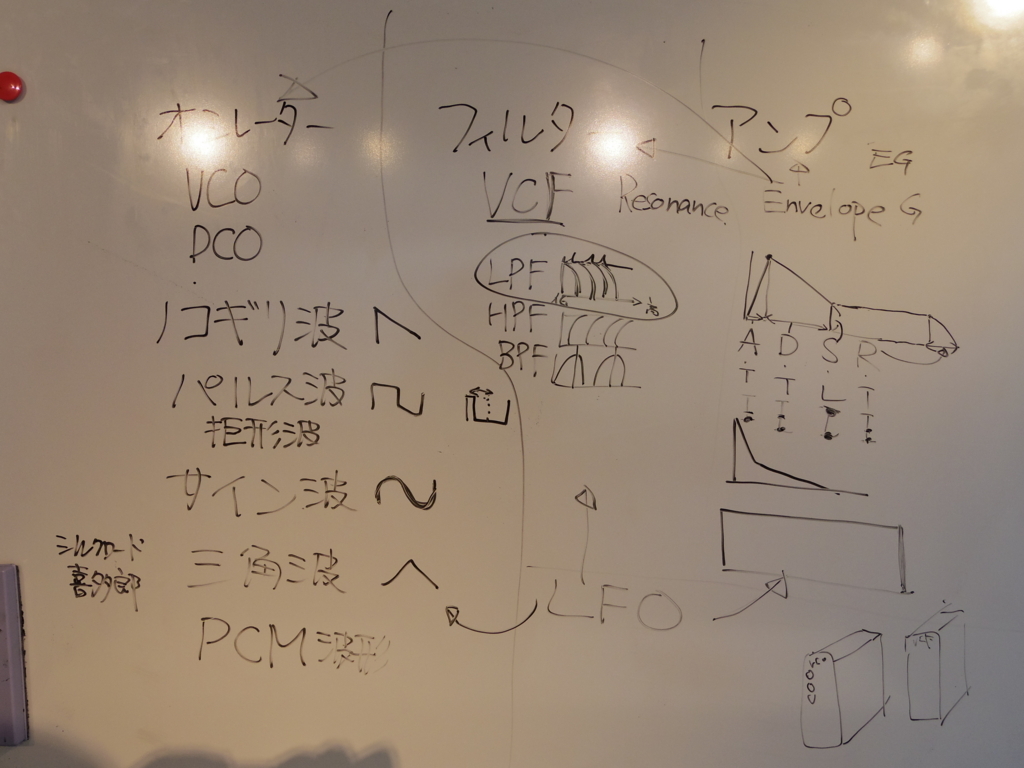 オシレーター
VCO
DCO
ノコギリ波
パルス波
矩形波
サイン波
シルクロード
喜多郎
三角波
PCM波形
フィルター
VCF
Resonance
LPF
HPF
BPF
LFO
アンプ
EG
Envelope G
A D S R
T T L T